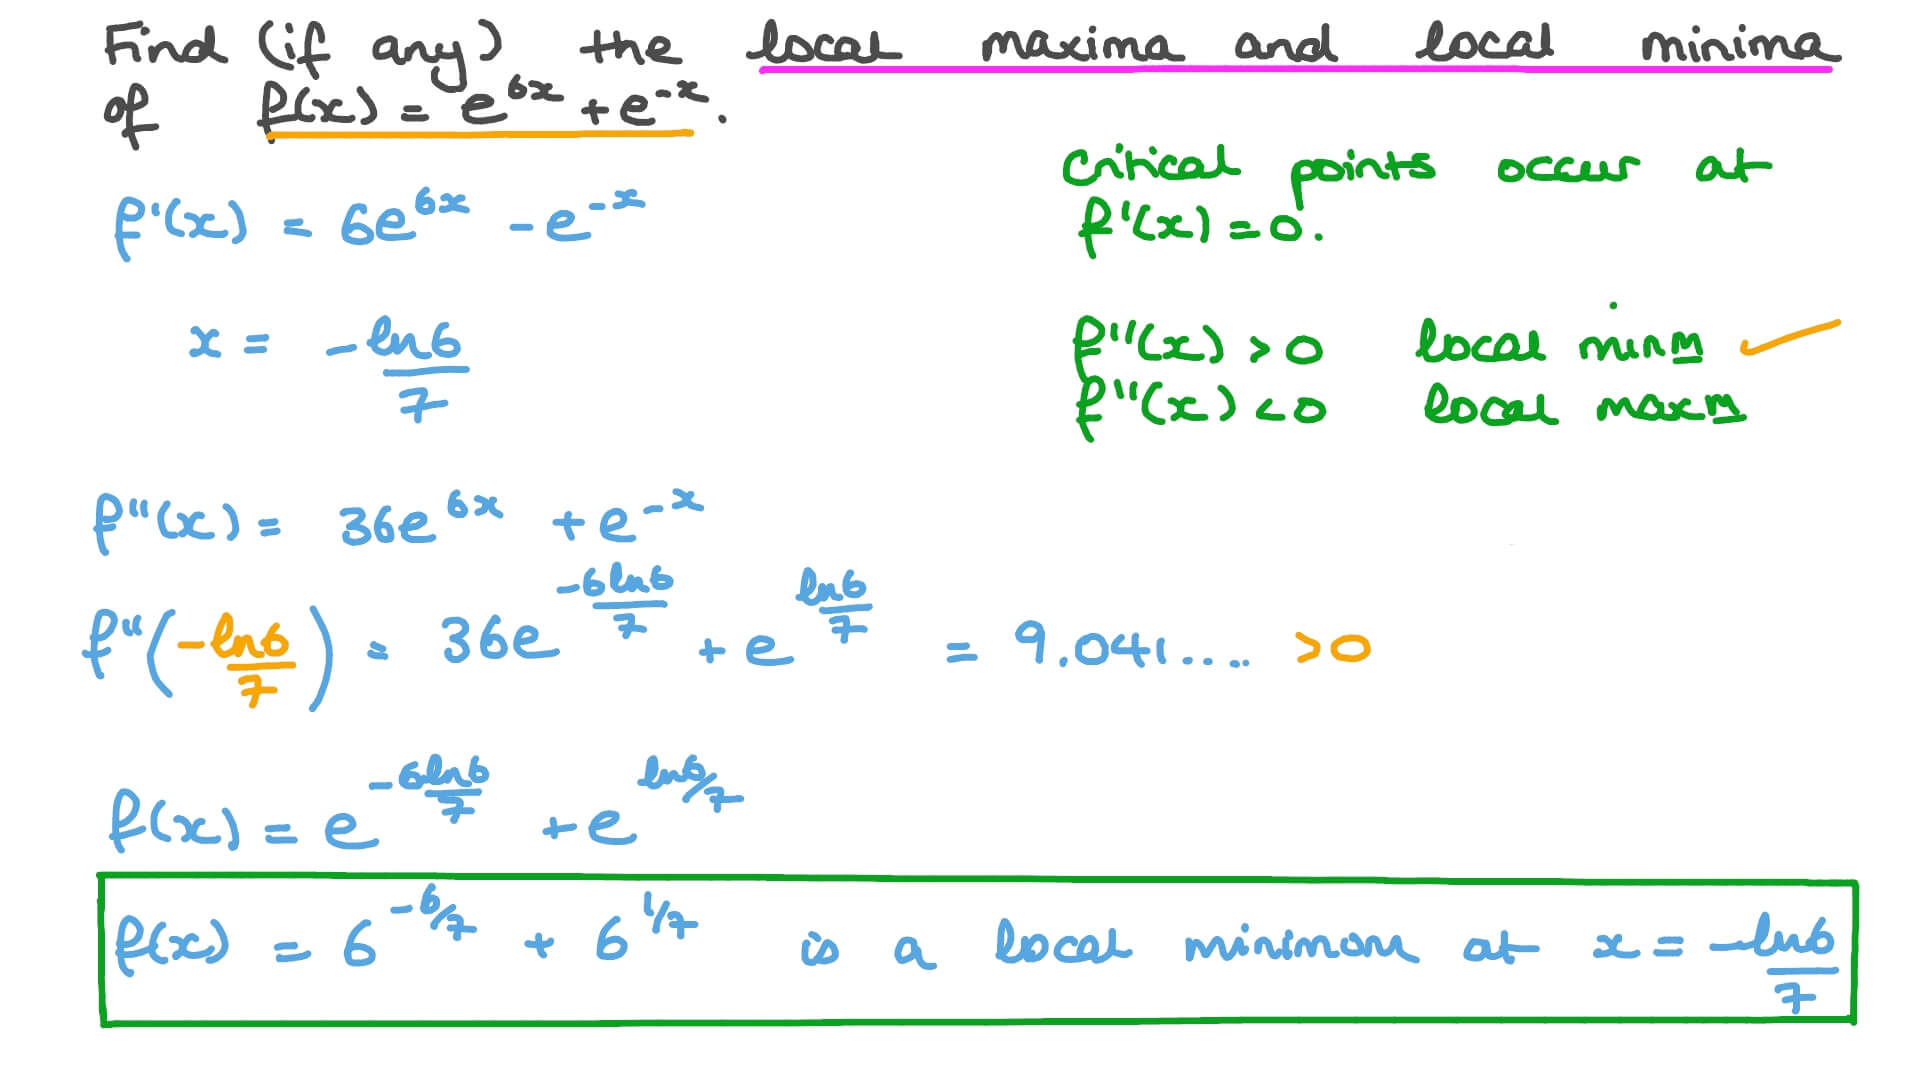 Find (if any) the local maxima and local minima
of f(x) = e^{6x} + e^{-x}.
Critical points occur at
f'(x) = 0.
f'(x) = 6e^{6x} - e^{-x}
x = -ln6/7
f''(x) > 0 local minm
f''(x) < 0 local maxm
f''(x) = 36e^{6x} + e^{-x}
f''(-ln6/7) = 36e^{-6ln6/7} + e^{ln6/7} = 9.041.... >0
f(x) = e^{-6ln6/7} + e^{ln6/7}
f(x) = 6^{-6/7} + 6^{1/7} is a local minimum at x = -ln6/7